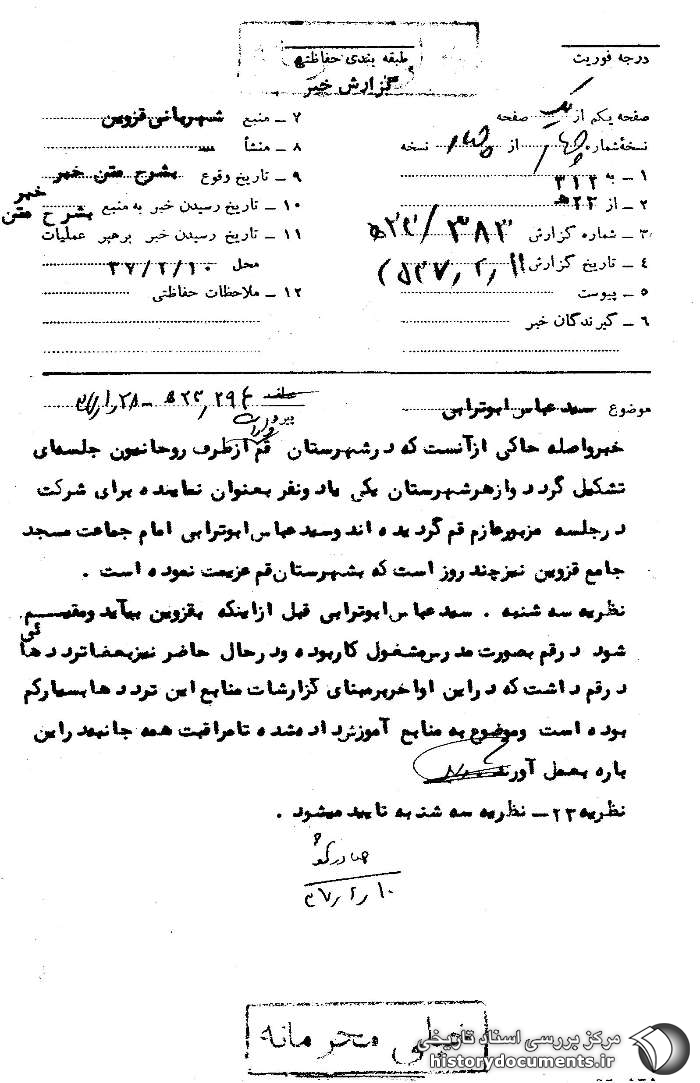 درجه فوریت
طبقه بندی حفاظتی
گزارش خبر
صفحه یکم از یک صفحه
نسخهٔ شماره چهار از چهار نسخه
۱ – به ۳۱۲
۲ – از ۲۲ ه
۳ – شماره گزارش ۳۸۳ / ۲۲ ه
۴ – تاریخ گزارش
۵ – پیوست
۶ – گیرندگان خبر
۷ – منبع شهربانی قزوین
۸ – منشأ
۹ – تاریخ وقوع بشرح متن خبر
۱۰ – تاریخ رسیدن خبر به منبع بشرح متن خبر
۱۱ – تاریخ رسیدن خبر برهبر عملیات
محل ۳۷/۲/۱۰
۱۲ – ملاحظات حفاظتی
موضوع سید عباس ابوترابی
خبرواصله حاکی ازآنست که درشهرستان قم ازطرف روحانیون جلسه‌ای
تشکیل گردد وازهرشهرستان یکی یادونفر بعنوان نماینده برای شرکت
درجلسه مزبورعازم قم گردیده اند وسیدعباس ابوترابی امام جماعت مسجد
جامع قزوین نیزچند روز است که بشهرستان قم عزیمت نموده است .
نظریه سه شنبه . سیدعباس ابوترابی قبل ازاینکه بقزوین بیآید ومقیم
شود درقم بصورت مدرس مشغول کاربوده ودرحال حاضر نیزبعضاترددهائی
درقم داشت که دراین اواخربرمبنای گزارشات منابع این ترددها بسیارکم
بوده است وموضوع به منابع آموزش داده شده تامراقبت همه جانبه دراین
باره بعمل آورند
نظریه ۲۳ – نظریه سه شنبه تایید میشود .
۳۷/۲/۱۰
خیلی محرمانه
مرکز بررسی اسناد تاریخی
historydocuments.ir